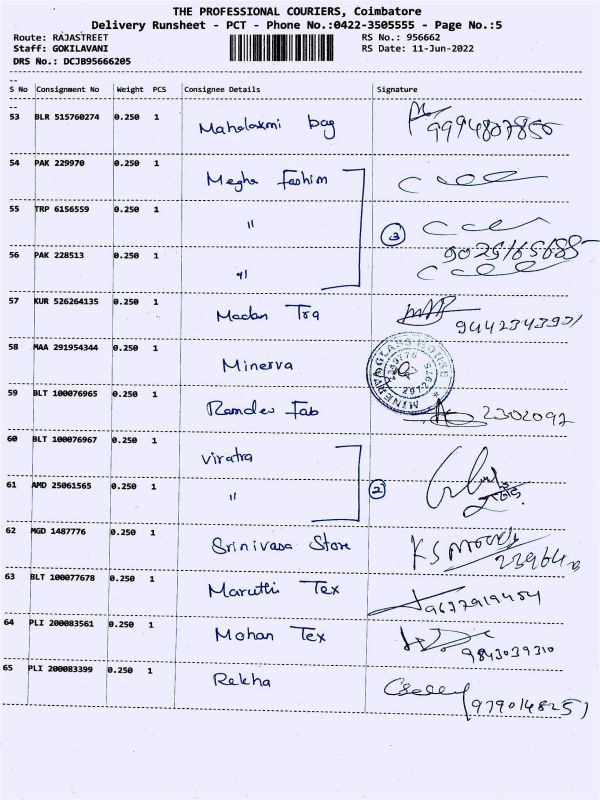 THE PROFESSIONAL COURIERS, Coimbatore
Delivery Runsheet - PCT - Phone No.:0422-3505555 - Page No.:5
Route: RAJASTREET RS No.: 956662
Staff: GOKILAVANI RS Date: 11-Jun-2022
DRS No.: DCJB95666205
S No Consignment No Weight PCS Consignee Details Signature
53 BLR 515760274 0.250 1 Mahalaxmi bag 9994807850
54 PAK 229970 0.250 1 Megha Fashim
55 TRP 6156559 0.250 1 " 3
9025165685
56 PAK 228513 0.250 1 "
57 KUR 526264135 0.250 1 Madan Tra 9442343931
58 MAA 291954344 0.250 1 Minerva
59 BLT 100076965 0.250 1 Ramdev Fab 2302092
60 BLT 100076967 0.250 1 Viratra
61 AMD 25061565 0.250 1 " 2
62 MGD 1487776 0.250 1 Srinivasa Store
63 BLT 100077678 0.250 1 Maruthi Tex 9677919454
64 PLI 200083561 0.250 1 Mohan Tex 9843039310
65 PLI 200083399 0.250 1 Rekha 9790148251